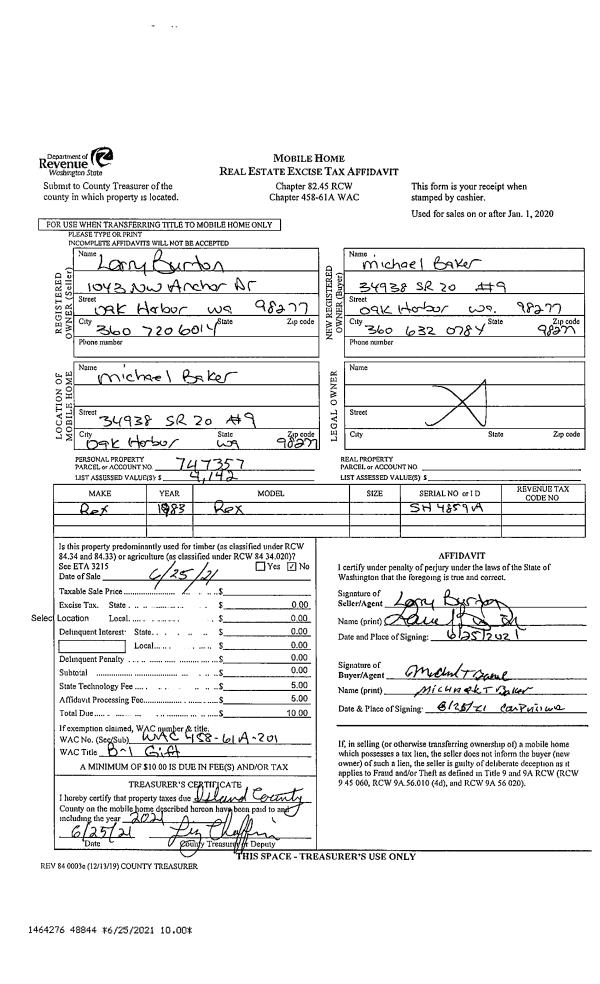 Department of
Revenue
Washington State
MOBILE HOME
REAL ESTATE EXCISE TAX AFFIDAVIT
Submit to County Treasurer of the
county in which property is located.
Chapter 82.45 RCW
Chapter 458-61A WAC
This form is your receipt when
stamped by cashier.
Used for sales on or after Jan. 1, 2020
FOR USE WHEN TRANSFERRING TITLE TO MOBILE HOME ONLY
PLEASE TYPE OR PRINT
INCOMPLETE AFFIDAVITS WILL NOT BE ACCEPTED
REGISTERED OWNER (Seller)
Name Larry Burton
1043 NW Anchor Dr
Street
Oak Harbor wa 98277
City State Zip code
360 720 6014
Phone number
NEW REGISTERED OWNER (Buyer)
Name
Michael Baker
34938 SR 20 #9
Street
Oak Harbor wa. 98277
City State Zip code
360 632 0784 98277
Phone number
LOCATION OF MOBILE HOME
Name
Michael Baker
Street
34938 SR 20 #9
City State Zip code
Oak Harbor wa 98277
LEGAL OWNER
Name
Street
City State Zip code
PERSONAL PROPERTY
PARCEL or ACCOUNT NO. 747357
LIST ASSESSED VALUE(S) $ 4,142
REAL PROPERTY
PARCEL or ACCOUNT NO.
LIST ASSESSED VALUE(S) $
MAKE YEAR MODEL SIZE SERIAL NO or I D REVENUE TAX CODE NO
Rex 1983 Rex SH4859A
Is this property predominantly used for timber (as classified under RCW
84.34 and 84.33) or agriculture (as classified under RCW 84 34.020)?
See ETA 3215 Yes No
Date of Sale 6/25/21
Taxable Sale Price $
Excise Tax. State $ 0.00
Select Location Local $ 0.00
Delinquent Interest: State $ 0.00
Local $ 0.00
Delinquent Penalty $ 0.00
Subtotal $ 0.00
State Technology Fee $ 5.00
Affidavit Processing Fee $ 5.00
Total Due $ 10 00
If exemption claimed, WAC number & title.
WAC No. (Sec/Sub) WAC 458-61A-201
WAC Title B-1 Gift
A MINIMUM OF $10 00 IS DUE IN FEE(S) AND/OR TAX
TREASURER'S CERTIFICATE
I hereby certify that property taxes due Island County
County on the mobile home described hereon have been paid to and
including the year 2021
6/25/21
Date County Treasurer or Deputy
AFFIDAVIT
I certify under penalty of perjury under the laws of the State of
Washington that the foregoing is true and correct.
Signature of
Seller/Agent Larry Burton
Name (print)
Date and Place of Signing: 6/25/2021
Signature of
Buyer/Agent
Name (print) Michael T Baker
Date & Place of Signing: 6/25/21
If, in selling (or otherwise transferring ownership of) a mobile home
which possesses a tax lien, the seller does not inform the buyer (new
owner) of such a lien, the seller is guilty of deliberate deception as it
applies to Fraud and/or Theft as defined in Title 9 and 9A RCW (RCW
9 45 060, RCW 9A.56.010 (4d), and RCW 9A 56 020).
THIS SPACE - TREASURER'S USE ONLY
REV 84 0003e (12/13/19) COUNTY TREASURER
1464276 48844 *6/25/2021 10.00*